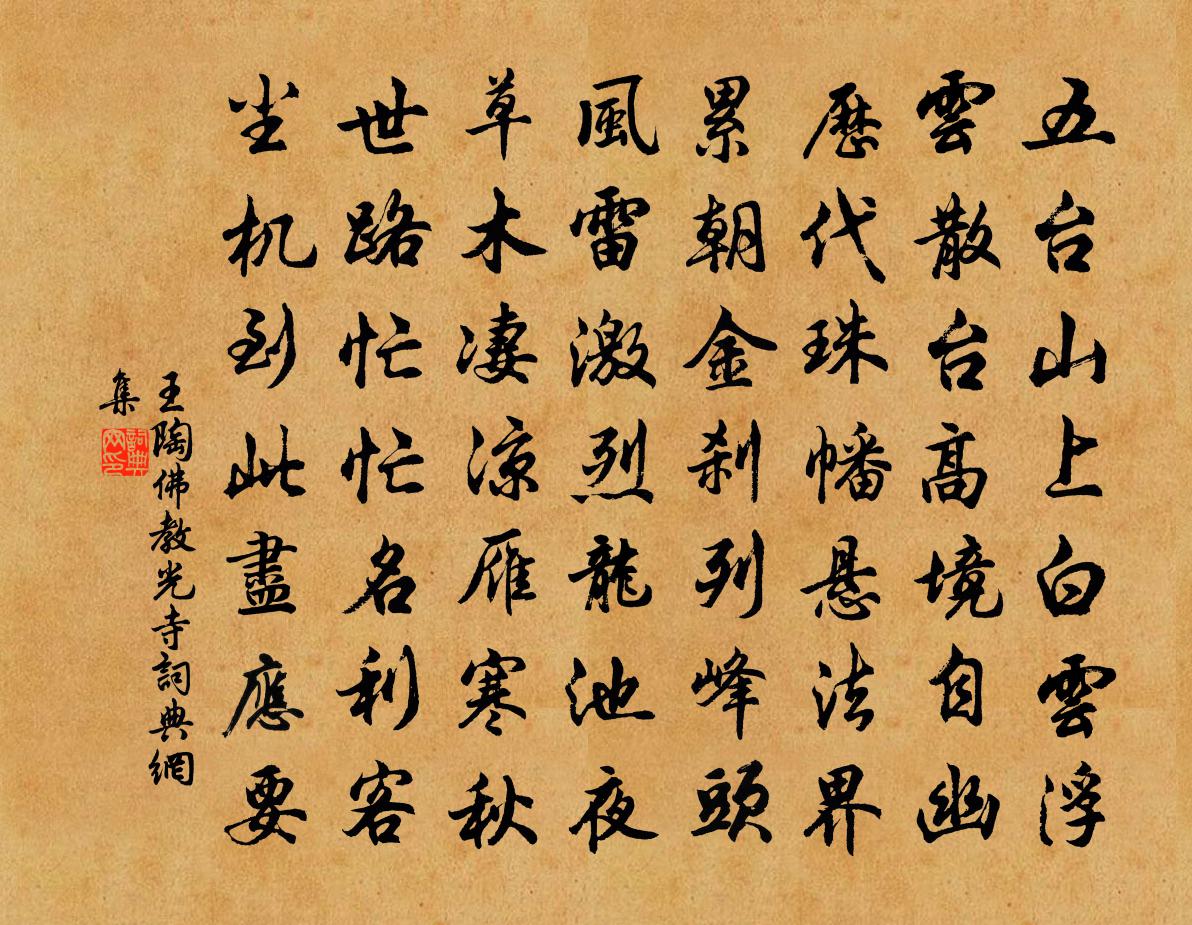 五台山上白雲浮
雲散台高境自幽
歷代珠幡悬法界
累朝金刹列峰頭
風雷激烈龍池夜
草木凄凉雁寒秋
世路忙忙名利客
尘机到此盡應要
王陶佛教光寺詞典網
集
詞典
网印